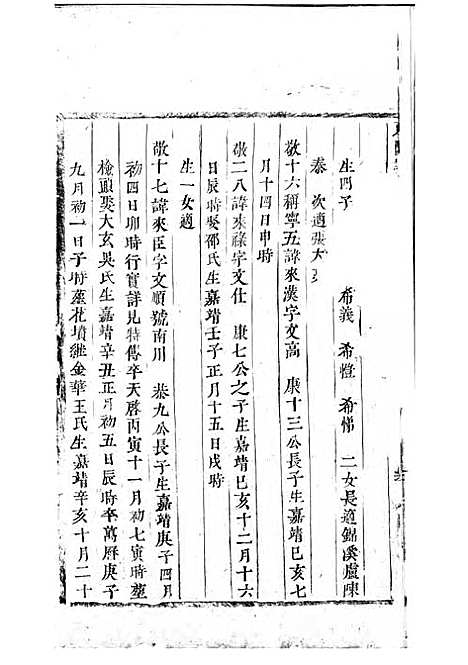 生四子 希義 希燈 希悌 二女長適錦溪盧陳
泰 次適張大
敬十六稱寧五諱來漢字文高 康十三公長子生嘉靖巳亥七
月十四日申時
敬二八諱來祿字文仕 康七公之子生嘉靖巳亥十二月十六
日辰時娶邵氏生嘉靖壬子正月十五日戌時
生一女適
敬十七諱來臣字文順號南川 恭九公長子生嘉靖庚子四月
初四日卯時行實詳見特傳卒天啓丙寅十一月初七寅時塟
檢頭娶大玄吳氏生嘉靖辛丑正月初五日辰時卒萬曆庚子
九月初一日子時塟花墳繼金華王氏生嘉靖辛亥十月二十